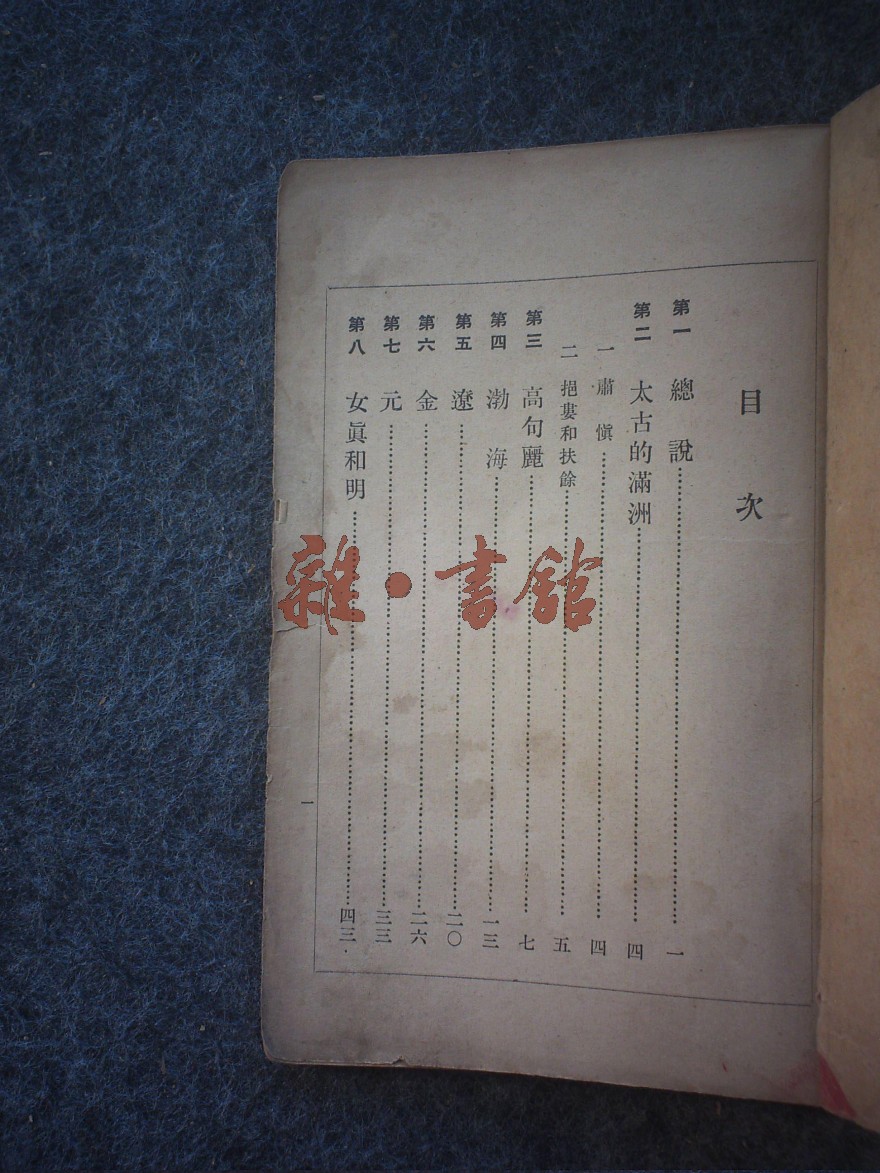 目次
第一 總說 一
第二 太古的滿洲 四
一 肅愼 四
二 挹婁和扶餘 五
第三 高句麗 七
第四 渤海 一三
第五 遼 二〇
第六 金 二六
第七 元 三三
第八 女眞和明 四三
一
雜·書館